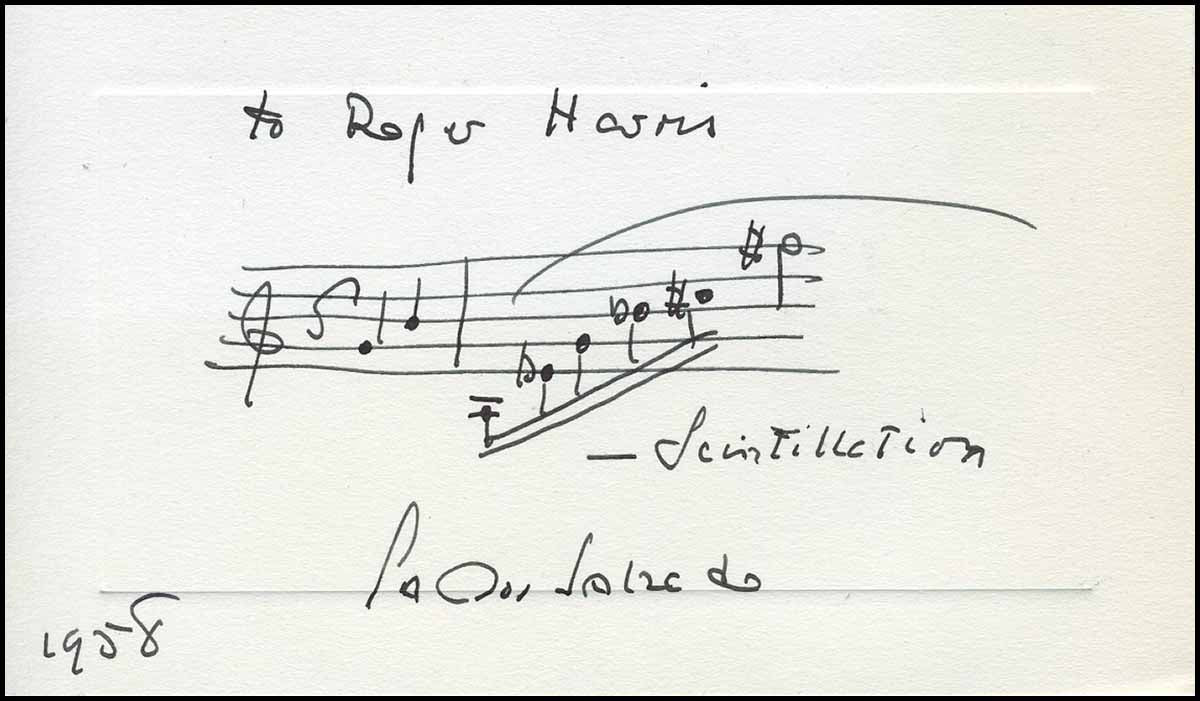 to Roger Harris
— Scintillation
Carlos Salzedo
1958